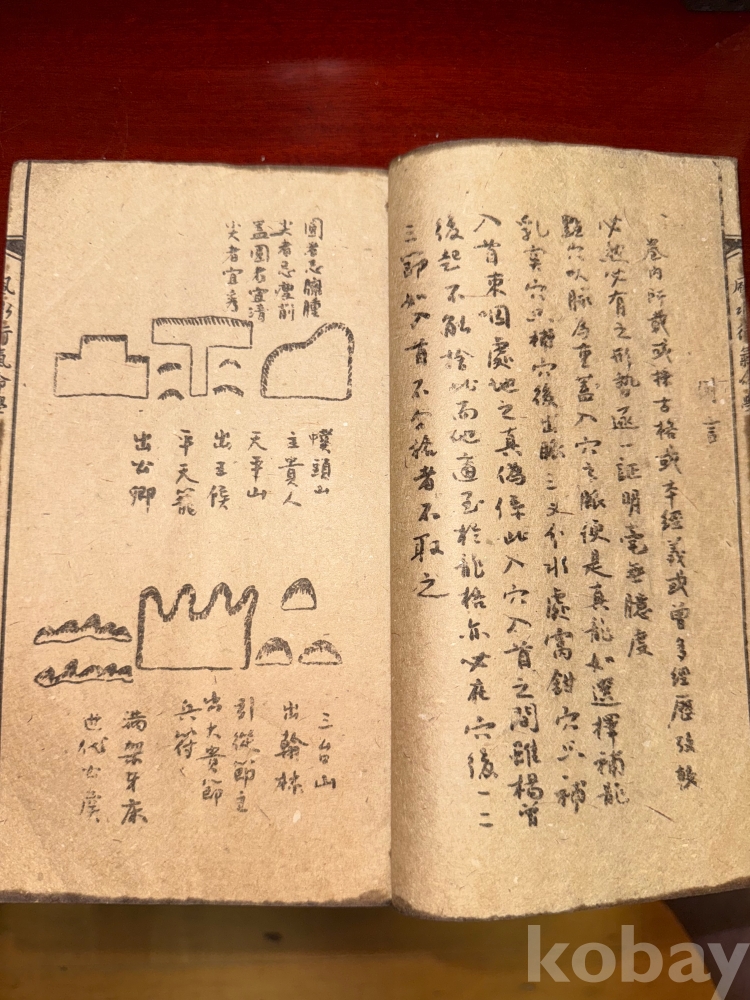 例言
一卷內所載或擇古格或本經義或曾多經歷效驗
必然必有之形勢逐一証明毫無臆度
點穴以脈為重蓋入穴之脈便是真龍如選擇補龍
乳突穴只補穴後出脈三叉分水處窩鉗穴只補
入首束咽處地之真偽係此入穴入首之間雖楊曾
後起不能捨此而他適至於龍格亦必在穴後一二
三節如入首不合格者不取之
圓者忌臃腫
尖者忌
蓋圓者宜清
尖者宜秀
幞頭山
主貴人
天平山
出王侯
平天
出公卿
三台山
出翰林
引從節主
出大貴節
兵符
滿架牙床
世代公侯
kobay